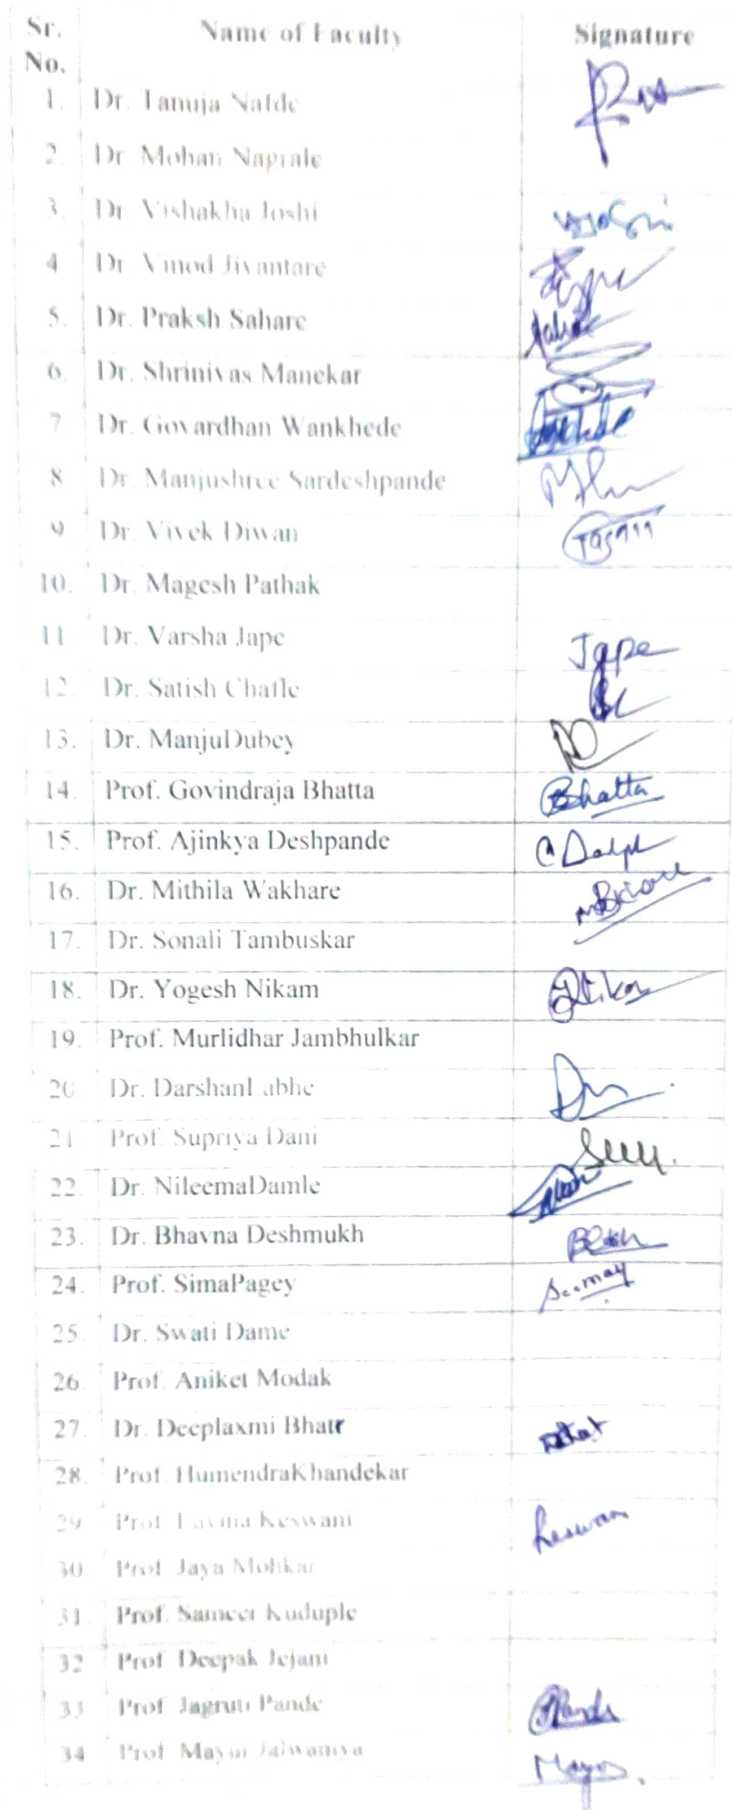 Sr. No. Name of Faculty Signature
1. Dr. Tanuja Nafde
2. Dr. Mohan Nagrale
3. Dr. Vishakha Joshi
4 Dr. Vinod Jivantare
5. Dr. Praksh Sahare
6. Dr. Shrinivas Manekar
7 Dr. Govardhan Wankhede
8 Dr. Manjushree Sardeshpande
9. Dr. Vivek Diwan
10. Dr. Magesh Pathak
11 Dr. Varsha Jape Jape
12. Dr. Satish Chafle
13. Dr. ManjuDubey
14. Prof. Govindraja Bhatta Bhatta
15. Prof. Ajinkya Deshpande
16. Dr. Mithila Wakhare
17. Dr. Sonali Tambuskar
18. Dr. Yogesh Nikam
19. Prof. Murlidhar Jambhulkar
20 Dr. DarshanLabhe
21. Prof. Supriya Dani
22. Dr. NileemaDamle
23. Dr. Bhavna Deshmukh
24. Prof. SimaPagey
25. Dr. Swati Dame
26. Prof. Aniket Modak
27. Dr. Deeplaxmi Bhatt
28. Prof. HumendraKhandekar
29 Prof. Lavina Keswani
30 Prof. Jaya Mohkar
31. Prof. Sameer Kuduple
32 Prof Deepak Jejani
33 Prof. Jagruti Pande
34 Prof. Mayur Jaiwaniya